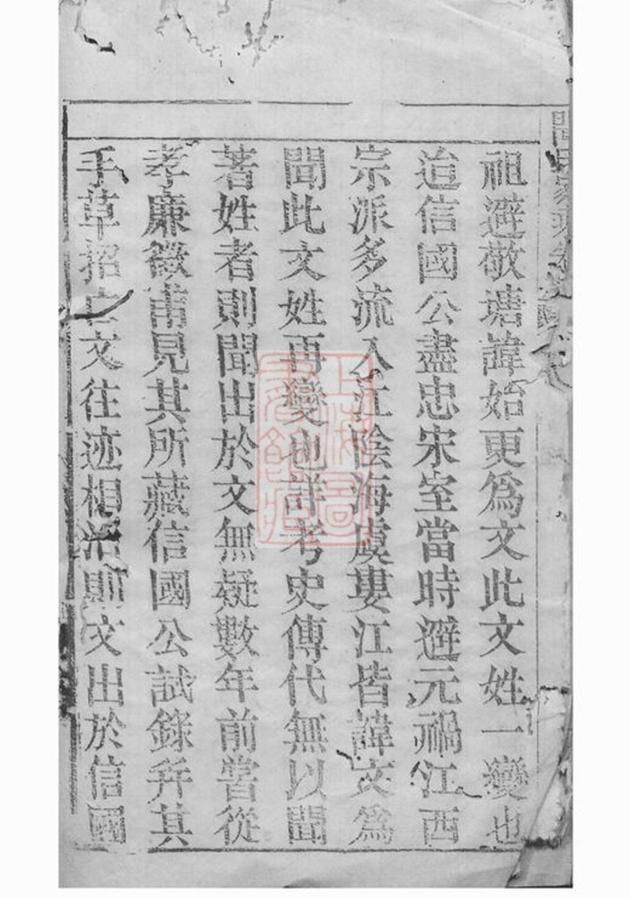 祖避敬瑭諱始更爲文此文姓一變也
迨信國公盡忠宋室當時避元禍江西
宗派多流入江陰海虞婁江皆諱文爲
聞此文姓再變也詳考史傳代無以聞
著姓者則聞出於文無疑數年前嘗從
孝廉徵甫見其所藏信國公試錄并其
手草招文往迹相沿則文出於信國